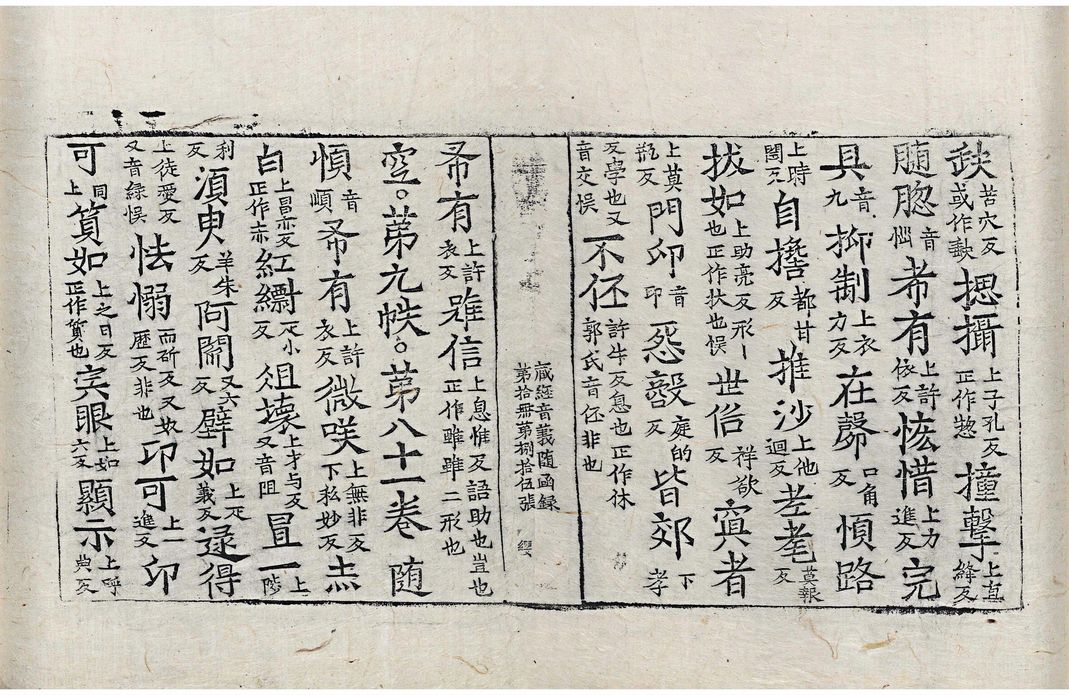 𡙇苦穴反或作缺揌攝上子孔反正作惣撞擊上直絳反
髄𦛁音惱希有上許依反悋惜上力進反完
具音九抑制上衣力反在㱿口角反慎路
上時閏反自擔都甘反推沙上他迴反老耄莫報反
拔如上助亮反形丨也正作状也悮世俗祥欲反㝠者
上莫瓶反門印音印惌㲉疑的反皆郊下孝
反學也又音交悮不㑅許牛反息也正作休郭氏音㑅非也
藏經音義隨函録
第拾冊第捌拾伍張 纓
希有上許衣反雖信上息惟反語助也豈也正作雖雖二形也
空。第九帙。第八十一卷 随
慎音順希有上許衣反微咲上無非反下私妙反赤
白上昌亦反正作赤紅縹疋小反俎壊上才与反又音阻冝一上
利反須臾羊朱反阿㝹又六反譬如上疋義反逯得
上徒愛反又音録悮怯愵而斫反又奴歷反非也印可上一進反印
可同上質如上之日反正作質也宍眼上如六反顯示上呼典反